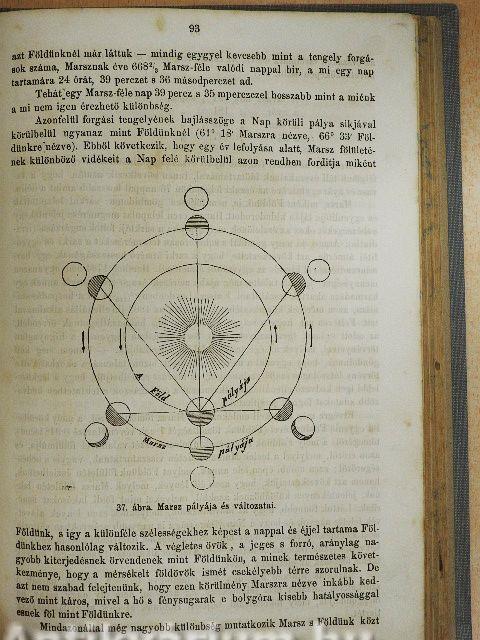 93
azt Földünknél már láttuk — mindig egygyel kevesebb mint a tengely forgá-
sok száma, Marsznak éve 668²/₃ Marsz-féle valódi nappal bir, a mi egy nap
tartamára 24 órát, 39 perczet s 36 másodperczet ad.
Tehát egy Marsz-féle nap 39 percz s 35 mperczezel hosszabb mint a miénk
a mi nem igen érezhető különbség.
Azonfelül forgási tengelyének hajlásszöge a Nap körüli pálya síkjával
körülbelül ugyanaz mint Földünknél (61° 18′ Marszra nézve, 66° 33′ Föl-
dünkre nézve). Ebből következik, hogy egy év lefolyása alatt, Marsz fölületé-
nek különböző vidékeit a Nap felé körülbelül azon rendben forditja miként
A Föld pályája
Marsz pályája
37. ábra. Marsz pályája és változatai.
Földünk, s igy a különféle szélességekhez képest a nappal és éjjel tartama Föl-
dünkhez hasonlólag változik. A végletes övök, a jeges s forró, aránylag na-
gyobb kiterjedésnek örvendenek mint Földünkön, a minek természetes követ-
kezménye, hogy a mérsékelt földövök ismét csekélyebb térre szorulnak. De
azt nem szabad felejtenünk, hogy ezen körülmény Marszra nézve inkább ked-
vező mint káros, mivel a hő s fénysugarak e bolygóra kisebb hatályossággal
esnek föl mint Földünkre.
Mindazonáltal még nagyobb különbség mutatkozik Marsz s Földünk közt